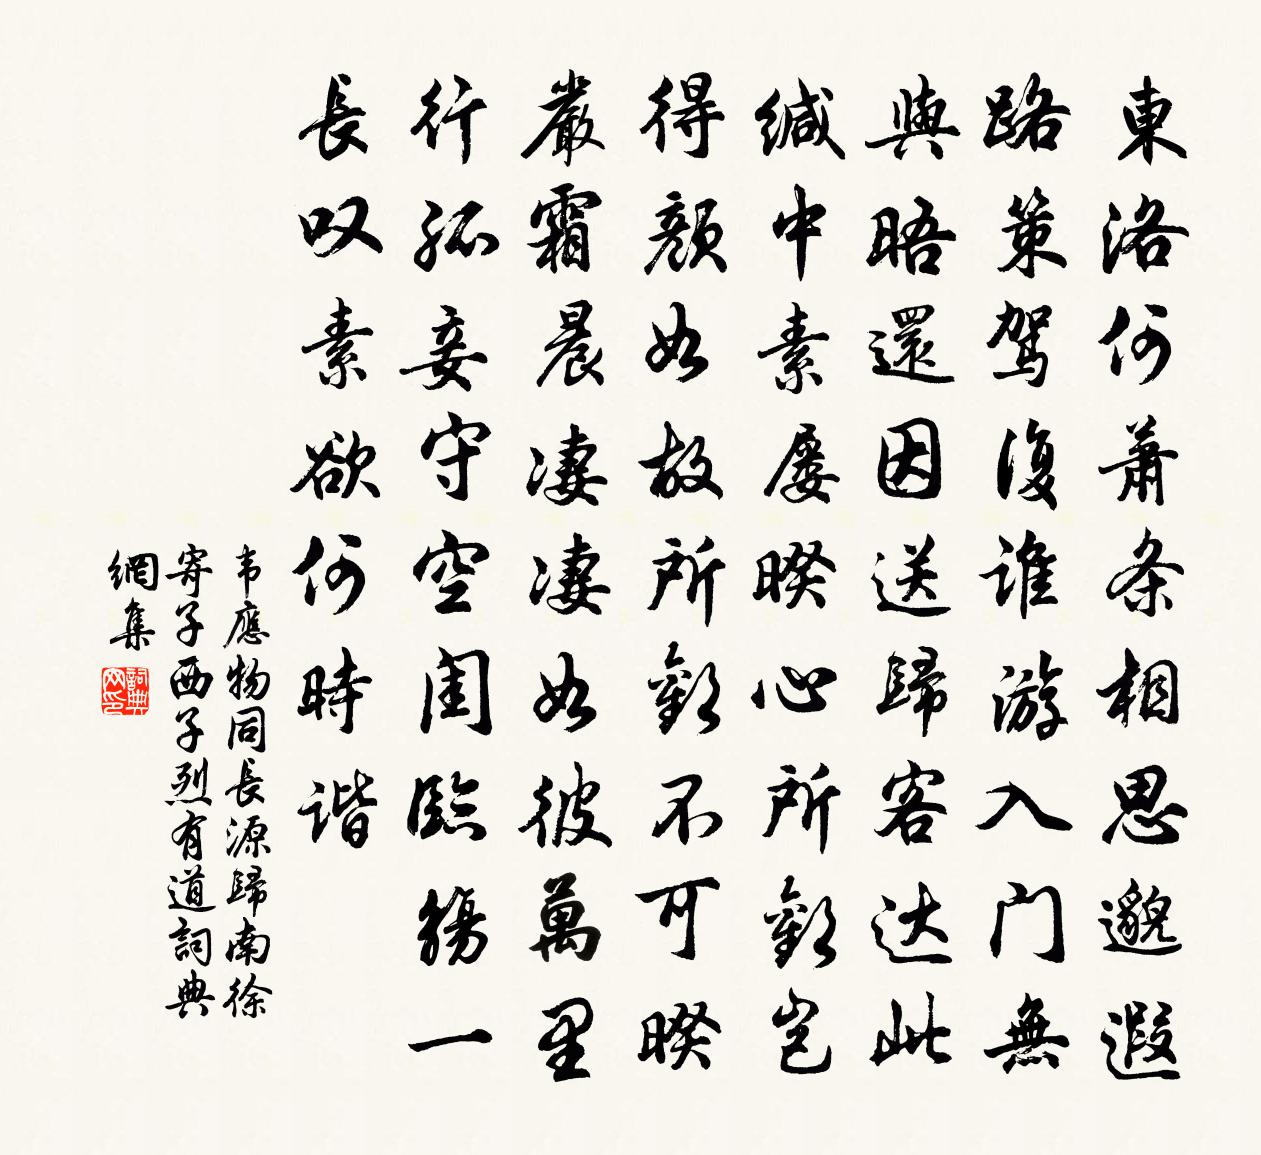 東洛何蕭条相思邈遐
路策驾復誰游入门無
與晤還因送歸客达此
緘中素屡暌心所歡岂
得顔如故所歡不可暌
嚴霜晨凄凄如彼萬里
行孤妾守空闺臨觴一
長叹素欲何時谐
韦應物同長源歸南徐
寄子西子烈有道詞典
網集
詞典
网印